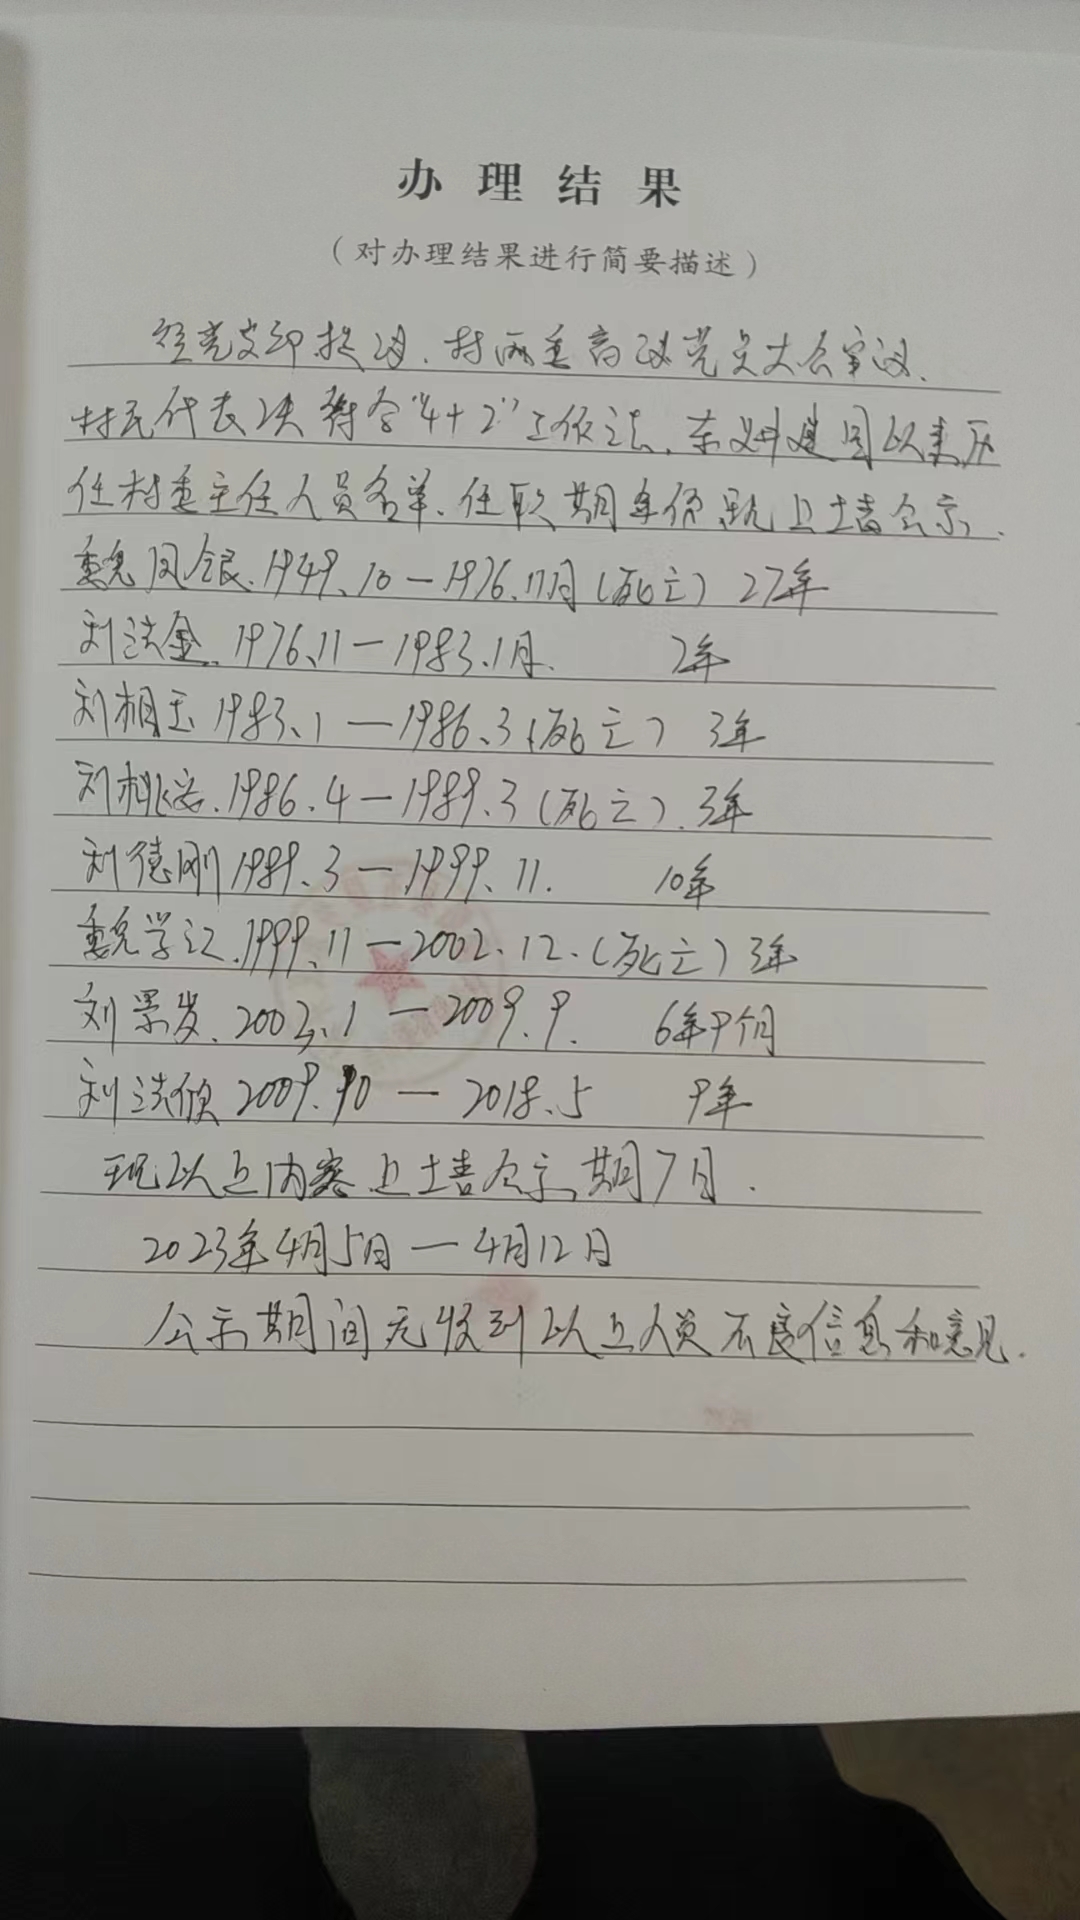 办理结果
(对办理结果进行简要描述)
经党支部提议、村两委商议党员大会审议、
村民代表决符合“4+2”工作法、东刘建国以来历
任村委主任人员名单、任职期年份现上墙公示.
魏凤银.1949.10—1976.11月(死亡) 27年
刘法金.1976.11—1983.1月. 7年
刘相玉1983.1—1986.3(死亡) 3年
刘桃.1986.4—1989.3(死亡).3年
刘德刚1989.3—1999.11. 10年
魏学江.1999.11—2002.12.(死亡)3年
刘景发.2003.1—2009.9. 6年9个月
刘法 2009.10—2018.5 9年
现以上内容上墙公示期7日.
2023年4月5日—4月12日
公示期间无收到以上人员不良信息和意见.